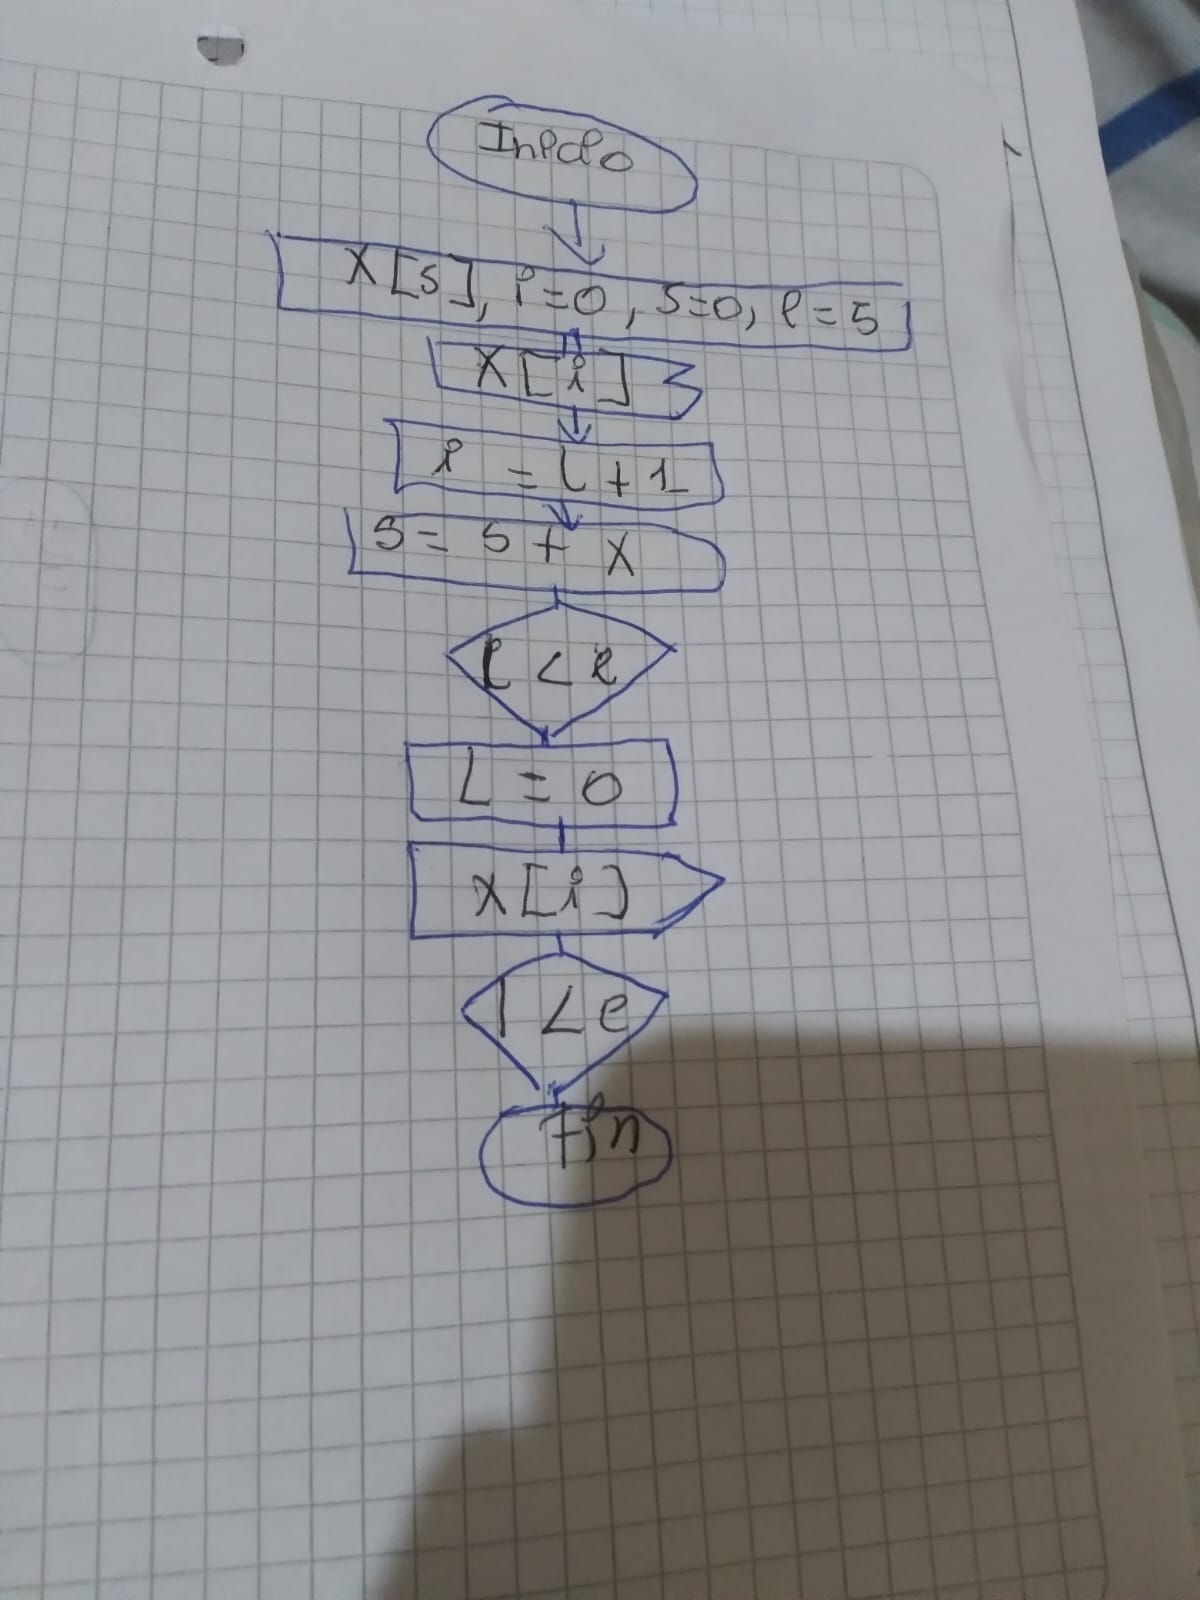 Inicio
X[5], i=0, S=0, e=5
X[i]
i = i + 1
S = S + X
i < e
i = 0
X[i]
i < e
Fin